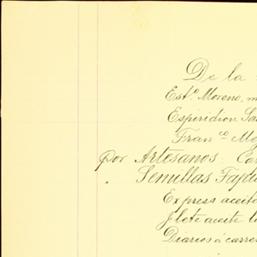 De la
Est.º Moreno, m
Espiridion Sa
Fran.co Mo
por Artesanos
Semillas
Express aceite
flote aceite
Diarios á carre